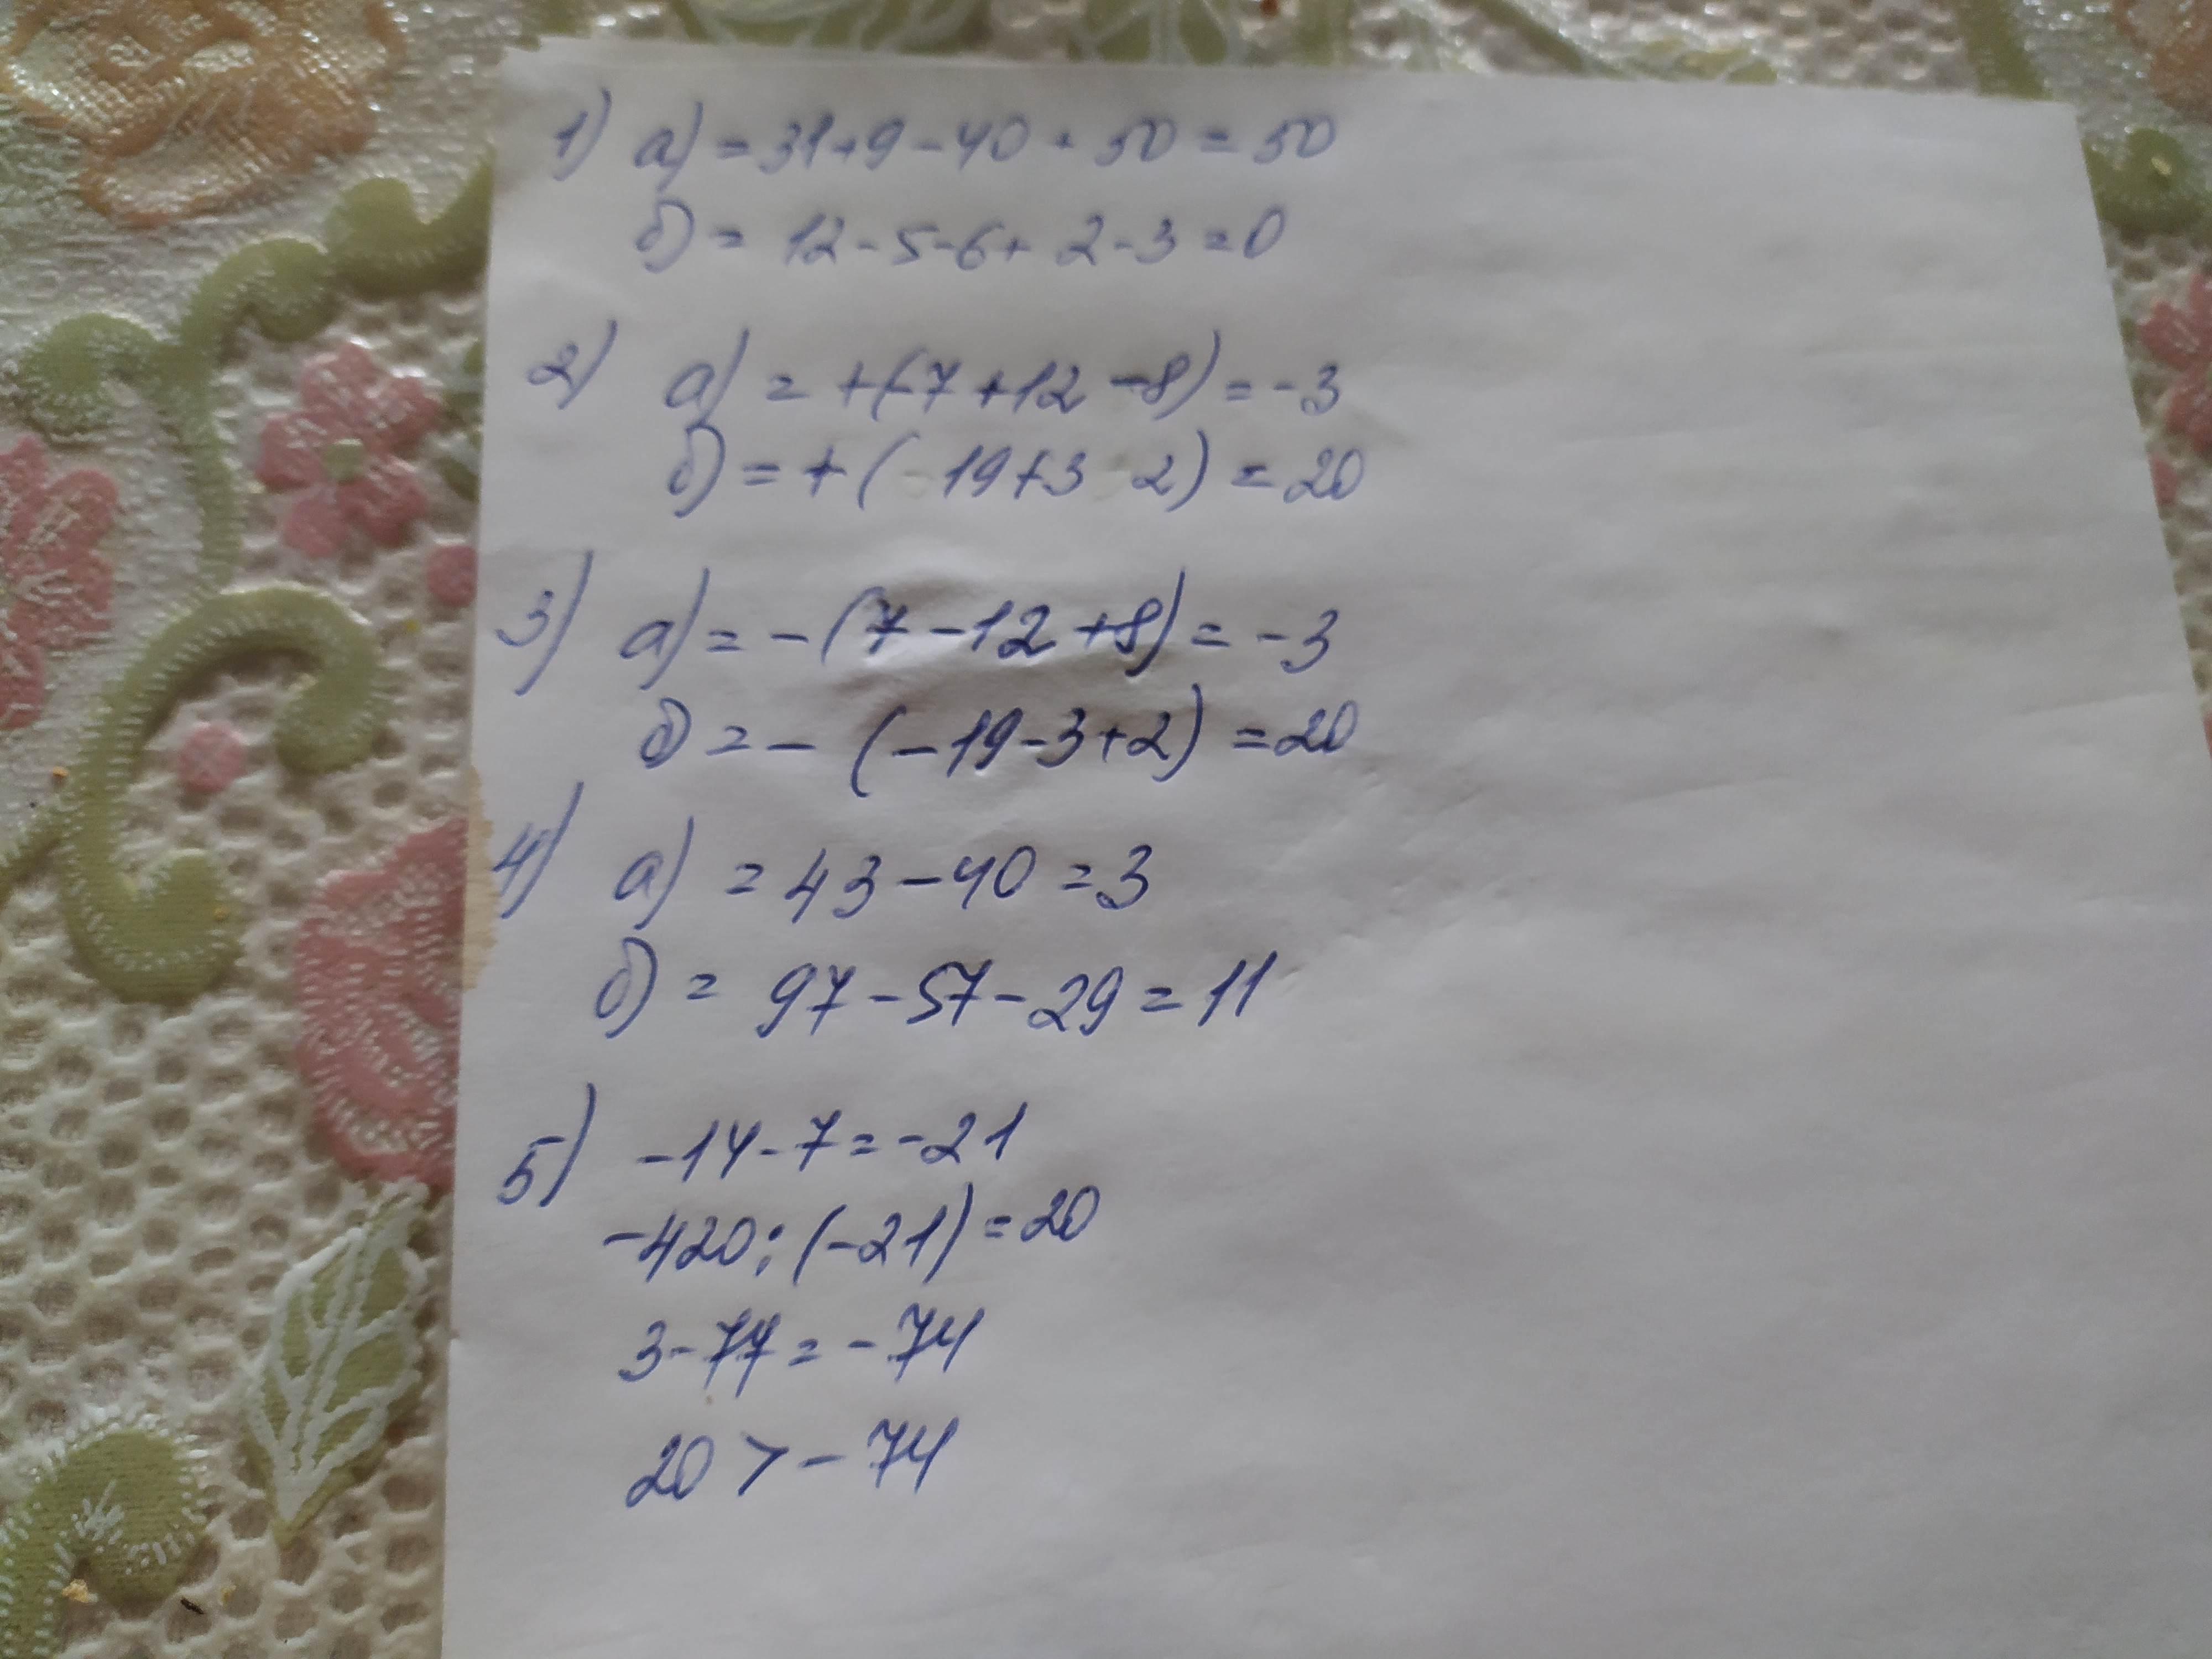 1) а) = 31+9-40+50 = 50
б) = 12-5-6+2-3=0
2) а) = +(-7+12-8) = -3
б) = +( 19+3 2) = 20
3) а) = -(7-12+8) = -3
б) = - (-19-3+2) = 20
4) а) = 43-40 = 3
б) = 97-57-29 = 11
5) -14-7 = -21
-420:(-21) = 20
3-77 = -74
20 > -74